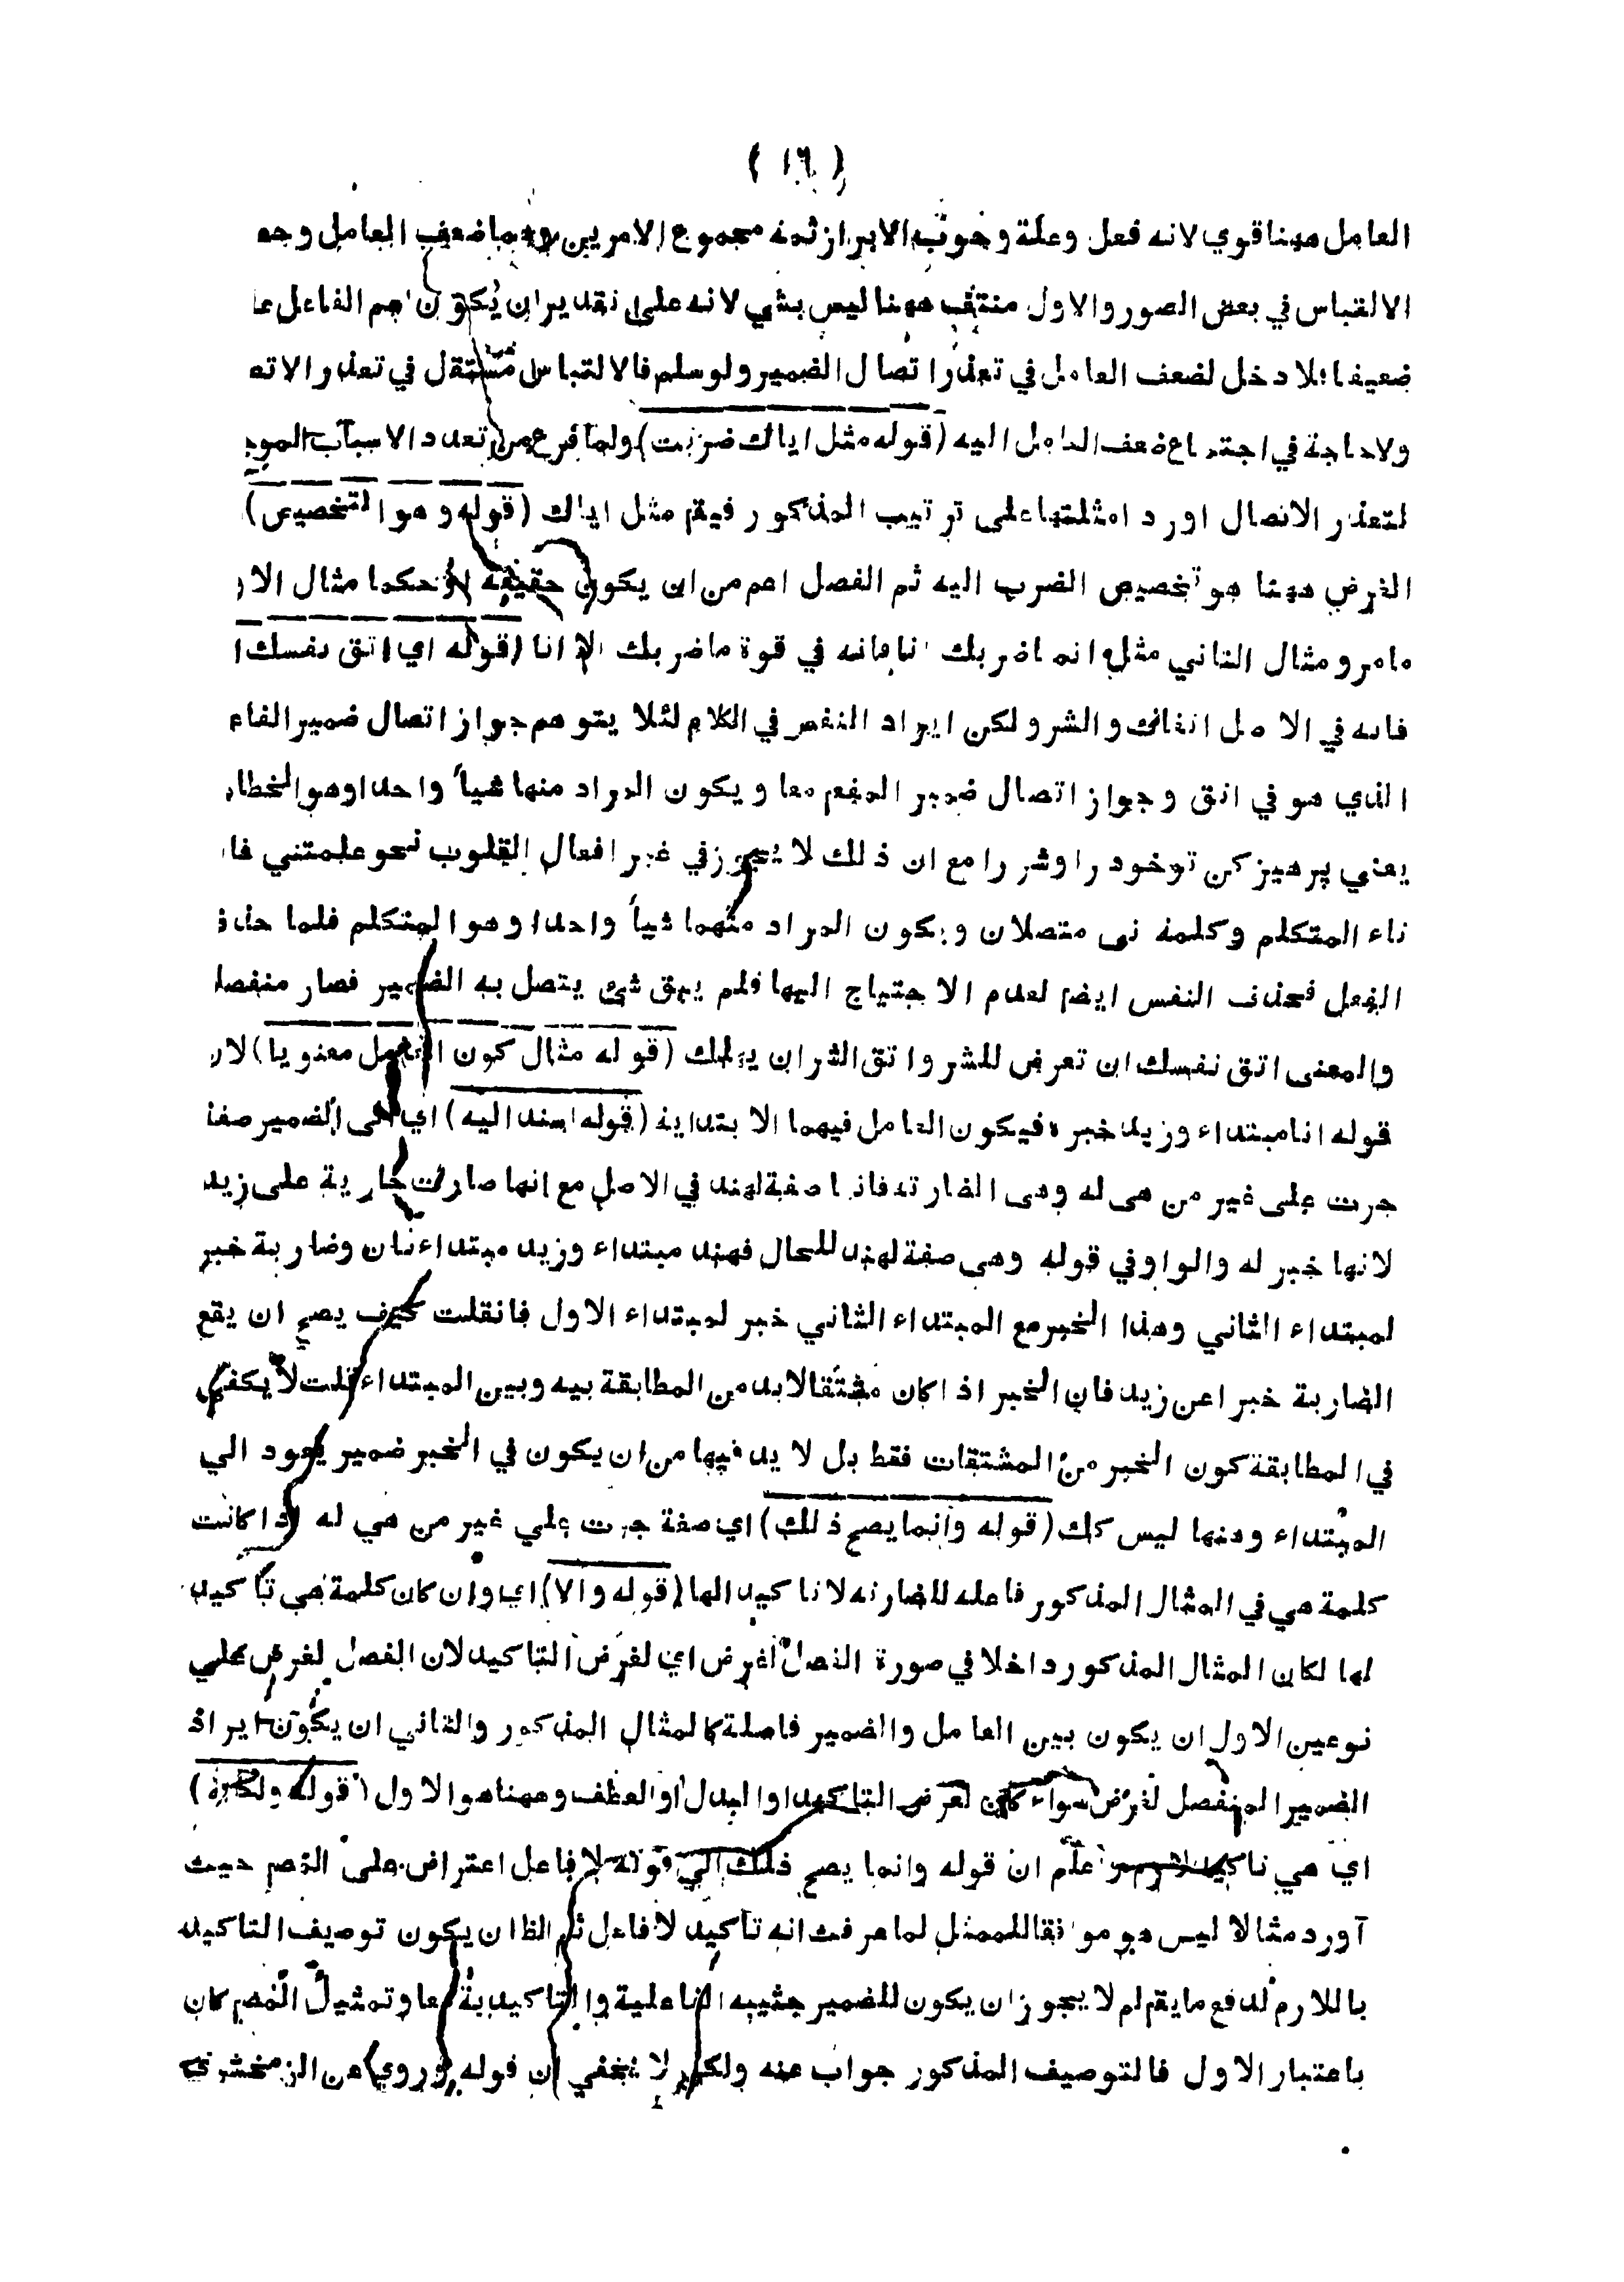 ( ١٦ )
العامل ههنا قوي لانه فعل وعلة وجوب الابراز ثمه مجموع الامرين وهما ضعف العامل وجه
الالتباس في بعض الصور والاول منتف ههنا ليس بشي لانه على تقدير ان يكون اسم الفاعل عا
ضعيفا لا دخل لضعف العامل في تعذر اتصال الضمير ولو سلم فالالتباس مستقل في تعذر الاتص
ولا حاجة في اجتماع ضعف العامل اليه (قوله مثل اياك ضربت) ولما فرع من تعدد الاسباب الموج
لتعذر الاتصال اورد امثلتها على ترتيب المذكور فيقم مثل اياك (قوله وهو التخصيص)
الغرض ههنا هو تخصيص الضرب اليه ثم الفصل اعم من ان يكون حقيقة او حكما مثال الاو
مامر ومثال الثاني مثل انما ضربك انا فانه في قوة ما ضربك الا انا (قوله اي اتق نفسك ا
فانه في الاصل اتقاك والشر ولكن ايراد النفس في الكلام لئلا يتوهم جواز اتصال ضمير الفاء
الذي هو في اتق وجواز اتصال ضمير المفعم معا ويكون المراد منها شيأ واحدا وهو المخطاب
يعني پرهيز كن تو خود را وشر را مع ان ذلك لا يجوز في غير افعال القلوب نحو علمتني فا
تاء المتكلم وكلمة نى متصلان ويكون المراد منهما شيأ واحدا وهو المتكلم فلما حذف
الفعل فحذف النفس ايضم لعدم الاحتياج اليها فلم يبق شئ يتصل به الضمير فصار منفصلا
والمعنى اتق نفسك ان تعرض للشر واتق الشر ان يهلك (قوله مثال كون العامل معنويا) لان
قوله انا مبتداء وزيد خبره فيكون العامل فيهما الابتداية (قوله اسند اليه) اي الى الضمير صفة
جرت على غير من هى له وهى الضاربة فانها صفة لهند في الاصل مع انها صارت جارية على زيد
لانها خبر له والواو في قوله وهى صفة لهند للحال فهند مبتداء وزيد مبتداء ثان وضاربة خبر
لمبتداء الثاني وهذا الخبر مع المبتداء الثاني خبر لمبتداء الاول فانقلت كيف يصح ان يقع
الضاربة خبرا عن زيد فان الخبر اذا كان مشتقا لا بد من المطابقة بيه وبين المبتداء قلت لا يكفي
في المطابقة كون الخبر من المشتقات فقط بل لا بد فيها من ان يكون في الخبر ضمير يعود الي
المبتداء وهنها ليس كك (قوله وانما يصح ذلك) اي صفة جرت علي غير من هي له اذا كانت
كلمة هي في المثال المذكور فاعله للضاربه لا تاكيد الها (قوله والا) اي وان كان كلمة هي تاكيد
لها لكان المثال المذكور داخلا في صورة الفصل لغرض اي لغرض التاكيد لان الفصل لغرض علي
نوعين الاول ان يكون بين العامل والضمير فاصلة كالمثال المذكور والثاني ان يكون ايراد
الضمير المنفصل لغرض سواء كان لغرض التاكيد او البدل او العطف وههنا هو الاول (قوله ولكنه)
اي هي تاكيد لازم اعلم ان قوله وانما يصح ذلك الي قوله لا فاعل اعتراض على المصم حيث
آورد مثالا ليس هو موافقا للممثل لما عرفت انه تاكيد لا فاعل ثم الظ ان يكون توصيف التاكيد
باللازم لدفع ما يقم لم لا يجوز ان يكون للضمير حيثيه الفاعلية والتاكيدية معا وتمثيل المصم كان
باعتبار الاول فالتوصيف المذكور جواب عنه ولكن لا يخفي ان قوله (وروي) عن الزمخشري